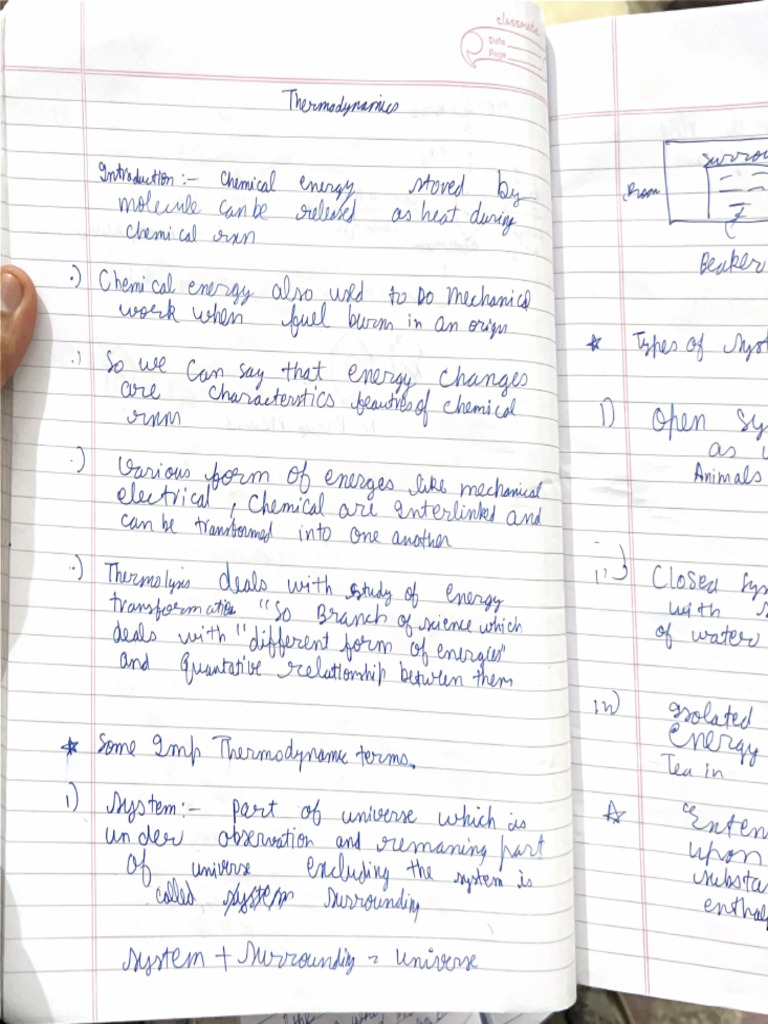 classmate
Date
Page
Thermodynamics
Introduction:- Chemical energy stored by
molecule can be released as heat during
chemical rxn
.) Chemical energy also used to Do mechanical
work when fuel burn in an
.) So we can say that energy changes
are characterstics beauties of chemical
rxnn
.) Various form of energes like mechanical
electrical, Chemical are interlinked and
can be transformed into one another
.) Thermolysis deals with study of energy
transformation "So Branch of science which
deals with "different form of energies"
and quantative relationship between them
* Some Imp Thermodynamic terms.
i) System:- part of universe which is
under observation and remaning part
of universe excluding the system is
called surrounding
System + Surrounding = universe
Room
Beaker
* Types of
i) Open
as
Animals
ii) Closed
with
of water
iii) Isolated
energy
Tea in
upon